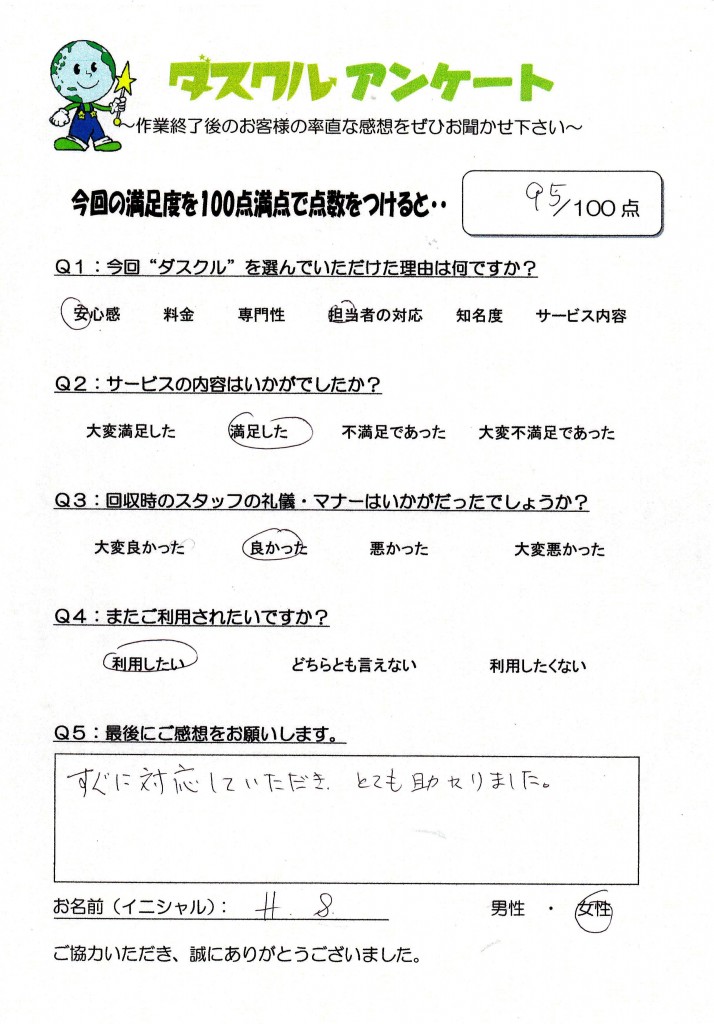 ダスクル アンケート
～作業終了後のお客様の率直な感想をぜひお聞かせ下さい～
今回の満足度を100点満点で点数をつけると・・ 95/100点
Q1：今回“ダスクル”を選んでいただけた理由は何ですか？
安心感 料金 専門性 担当者の対応 知名度 サービス内容
Q2：サービスの内容はいかがでしたか？
大変満足した 満足した 不満足であった 大変不満足であった
Q3：回収時のスタッフの礼儀・マナーはいかがだったでしょうか？
大変良かった 良かった 悪かった 大変悪かった
Q4：またご利用されたいですか？
利用したい どちらとも言えない 利用したくない
Q5：最後にご感想をお願いします。
すぐに対応していただき、とても助かりました。
お名前（イニシャル）： H．S 男性 ・ 女性
ご協力いただき、誠にありがとうございました。